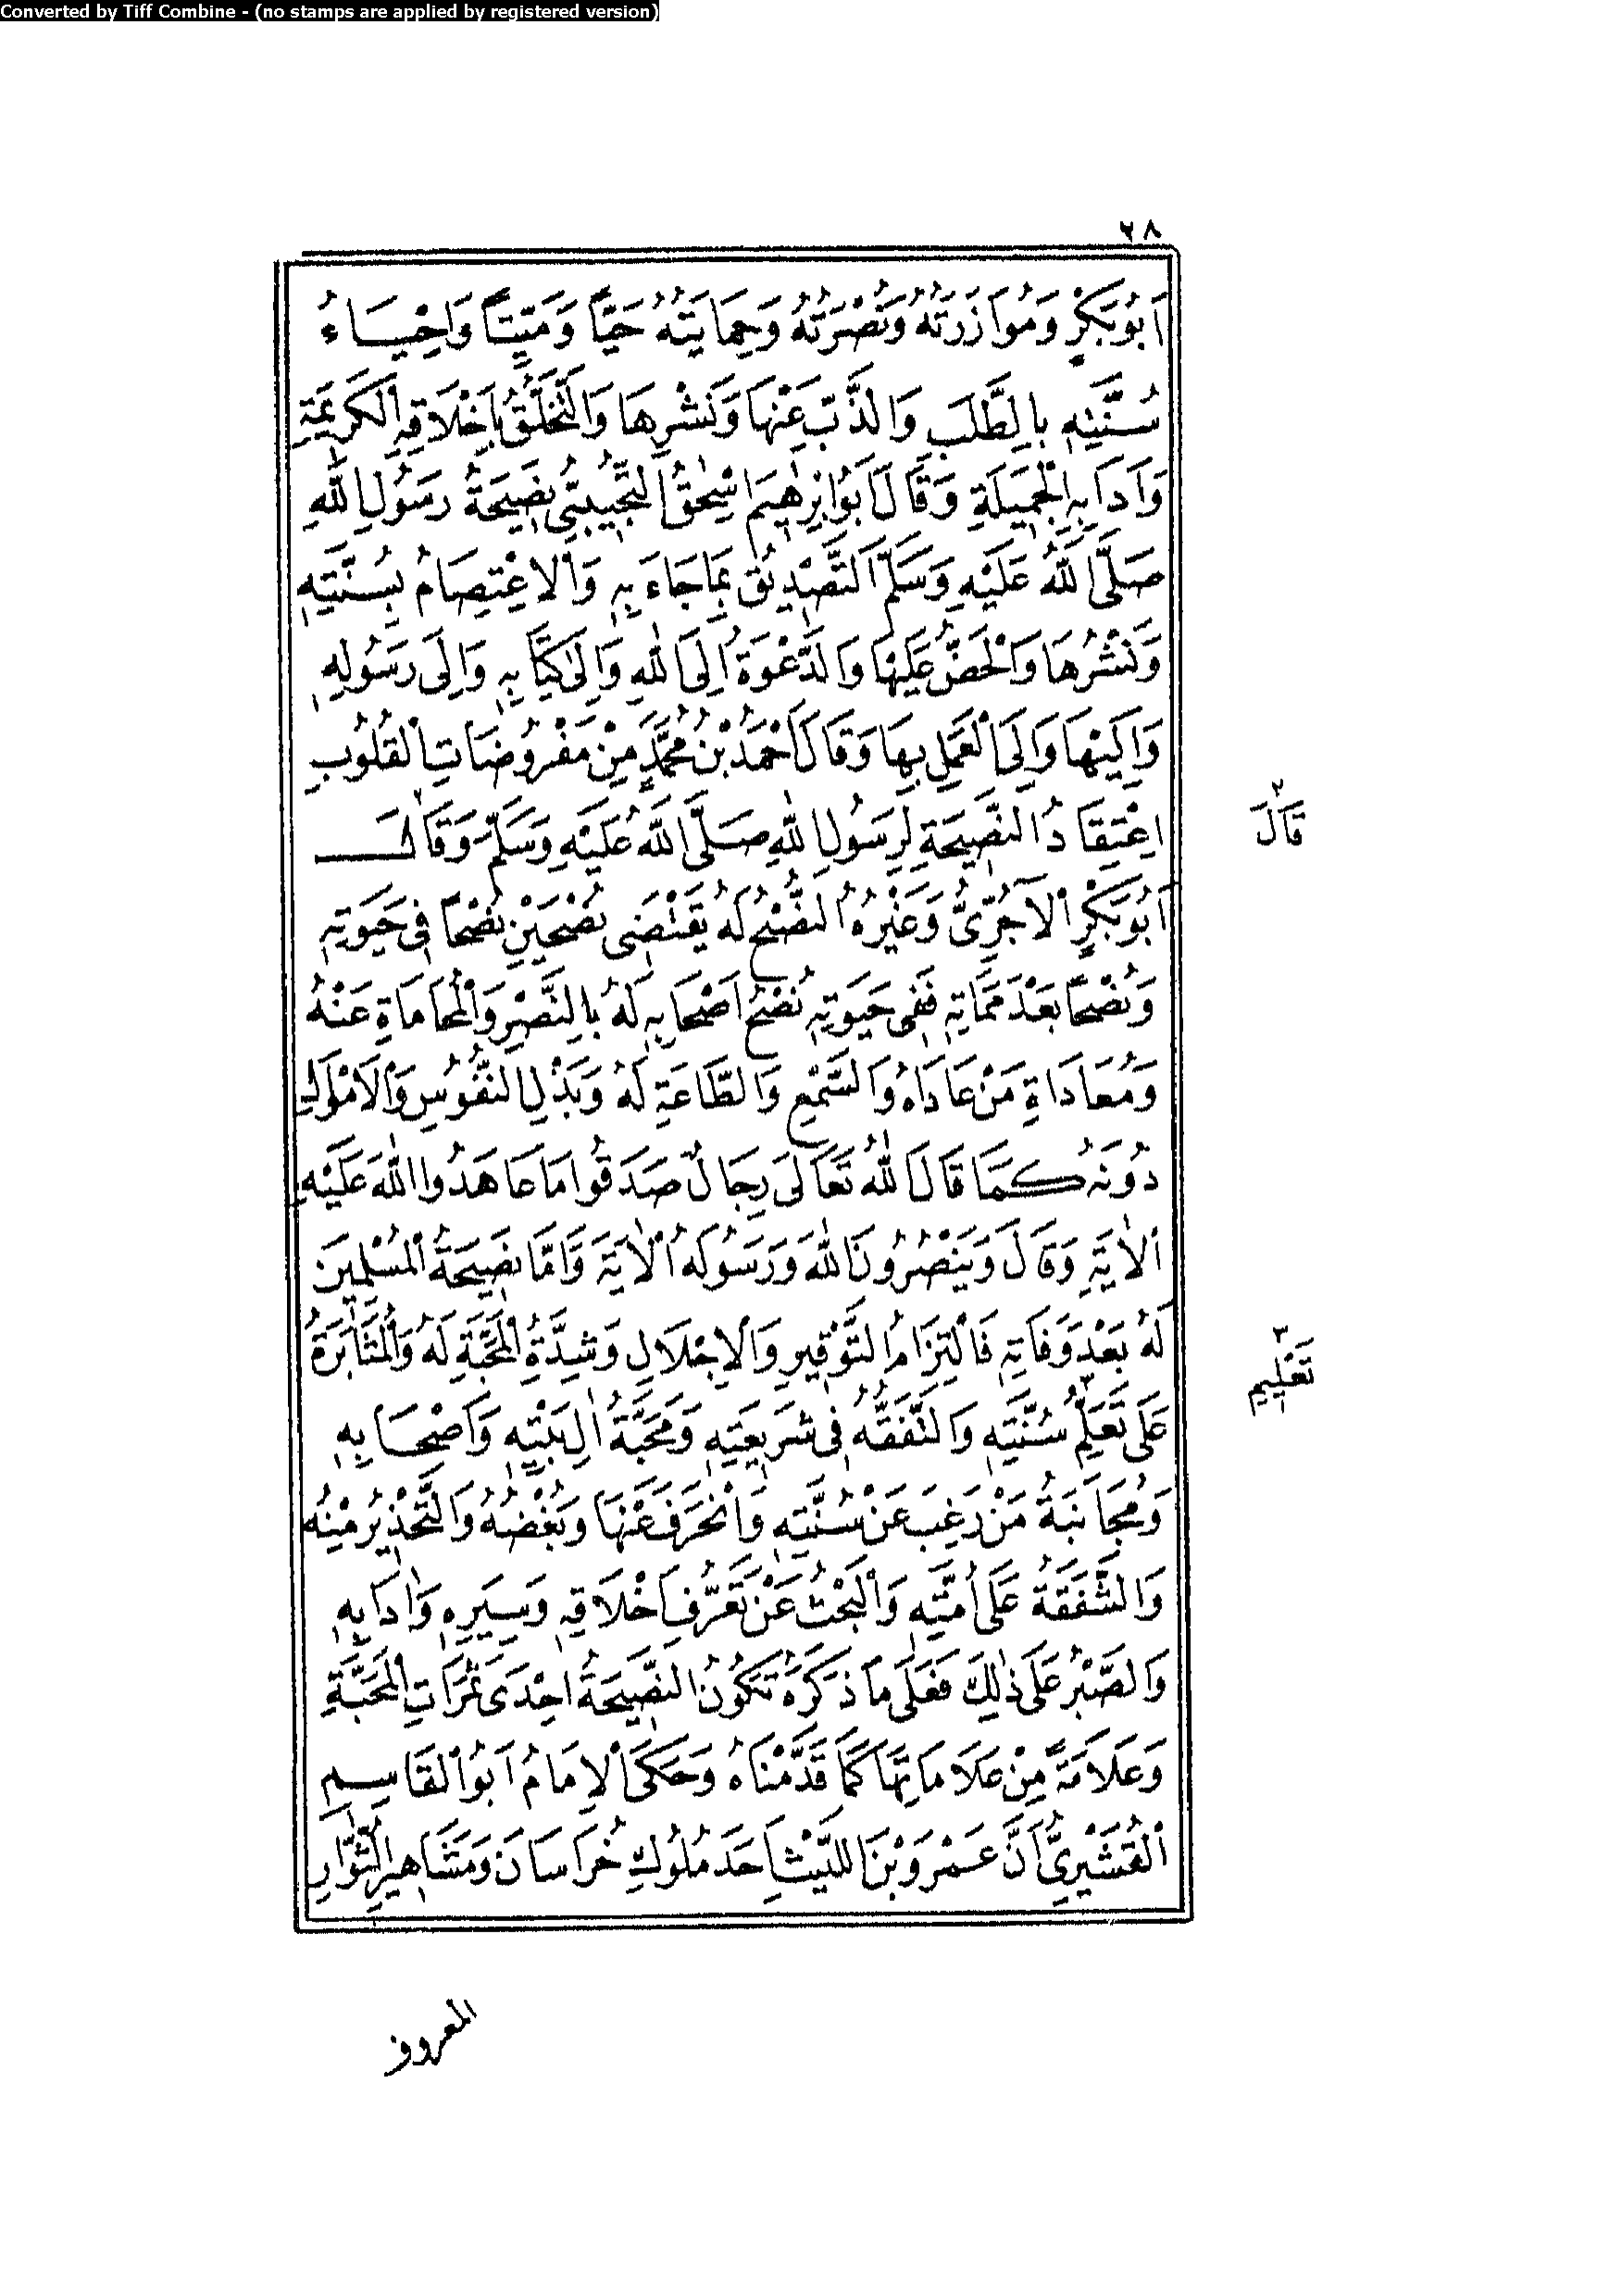 Converted by Tiff Combine - (no stamps are applied by registered version)
٢٨
اَبُو بَكْرٍ وَمُوَازَرَتُهُ وَنُصْرَتُهُ وَحِمَايَتُهُ حَيًّا وَمَيِّتًا وَاِحْيَاءُ
سُنَّتِهِ بِالطَّلَبِ وَالذَّبِّ عَنْهَا وَنَشْرِهَا وَالتَّخَلُّقُ بِاَخْلَاقِهِ الْكَرِيمَةِ
وَاٰدَابِهِ الْجَمِيلَةِ وَقَالَ اَبُو اِبْرٰهِيمَ اِسْحٰقُ التُّجِيبِيُّ نَصِيحَةُ رَسُولِ اللّٰهِ
صَلَّى اللّٰهُ عَلَيْهِ وَسَلَّمَ اَلتَّصْدِيقُ بِمَا جَاءَ بِهِ وَالْاِعْتِصَامُ بِسُنَّتِهِ
وَنَشْرُهَا وَالْحَضُّ عَلَيْهَا وَالدَّعْوَةُ اِلَى اللّٰهِ وَاِلٰى كِتَابِهِ وَاِلَى رَسُولِهِ
وَاِلَيْهَا وَاِلَى الْعَمَلِ بِهَا وَقَالَ اَحْمَدُ بْنُ مُحَمَّدٍ مِنْ مَفْرُوضَاتِ الْقُلُوبِ
اِعْتِقَادُ النَّصِيحَةِ لِرَسُولِ اللّٰهِ صَلَّى اللّٰهُ عَلَيْهِ وَسَلَّمَ وَقَالَ٢
قَالَ ٢
اَبُو بَكْرٍ الْآجُرِّيُّ وَغَيْرُهُ النُّصْحُ لَهُ يَقْتَضِى نُصْحَيْنِ نُصْحًا فِى حَيٰوتِهِ
وَنُصْحًا بَعْدَ مَمَاتِهِ فَفِى حَيٰوتِهِ نُصْحُ اَصْحَابِهِ لَهُ بِالنَّصْرِ وَالْمُحَامَاةِ عَنْهُ
وَمُعَادَاةِ مَنْ عَادَاهُ وَالسَّمْعِ وَالطَّاعَةِ لَهُ وَبَذْلِ النُّفُوسِ وَالْاَمْوَالِ
دُونَهُ كَمَا قَالَ اللّٰهُ تَعَالَى رِجَالٌ صَدَقُوا مَا عَاهَدُوا اللّٰهَ عَلَيْهِ
اَلْاٰيَةِ وَقَالَ وَيَنْصُرُونَ اللّٰهَ وَرَسُولَهُ الْاٰيَةَ وَاَمَّا نَصِيحَةُ الْمُسْلِمِينَ
لَهُ بَعْدَ وَفَاتِهِ فَالْتِزَامُ التَّوْقِيرِ وَالْاِجْلَالِ وَشِدَّةُ الْمَحَبَّةِ لَهُ وَالْمُثَابَرَةُ
تَعْلِيمِ ٣
عَلَى تَعَلُّمِ٣ سُنَّتِهِ وَالتَّفَقُّهُ فِى شَرِيعَتِهِ وَمَحَبَّةُ اٰلِ بَيْتِهِ وَاَصْحَابِهِ
وَمُجَانَبَةُ مَنْ رَغِبَ عَنْ سُنَّتِهِ وَانْحَرَفَ عَنْهَا وَبُغْضُهُ وَالتَّحْذِيرُ مِنْهُ
وَالشَّفَقَةُ عَلَى اُمَّتِهِ وَالْبَحْثُ عَنْ تَعَرُّفِ اَخْلَاقِهِ وَسِيَرِهِ وَاٰدَابِهِ
وَالصَّبْرُ عَلَى ذٰلِكَ فَعَلَى مَا ذَكَرَهُ تَكُونُ النَّصِيحَةُ اِحْدَى ثَمَرَاتِ الْمَحَبَّةِ
وَعَلَامَةً مِنْ عَلَامَاتِهَا كَمَا قَدَّمْنَاهُ وَحَكَى الْاِمَامُ اَبُو الْقَاسِمِ
الْقُشَيْرِيُّ اَنَّ عَمْرَو بْنَ اللَّيْثِ اَحَدَ مُلُوكِ خُرَاسَانَ وَمَشَاهِيرِ الثُّوَّارِ
المعروف